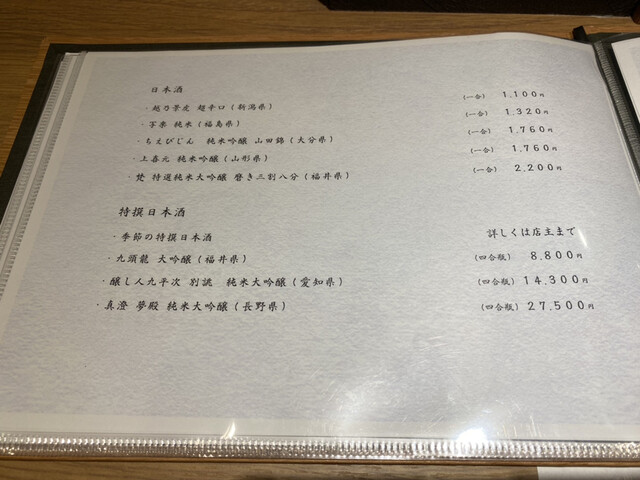 日本酒
・越乃景虎 超辛口（新潟県） （一合） 1,100円
・写楽 純米（福島県） （一合） 1,320円
・ちえびじん 純米吟醸 山田錦（大分県） （一合） 1,760円
・上喜元 純米吟醸（山形県） （一合） 1,760円
・梵 特選純米大吟醸 磨き三割八分（福井県） （一合） 2,200円
特撰日本酒
・季節の特撰日本酒 詳しくは店主まで
・九頭龍 大吟醸（福井県） （四合瓶） 8,800円
・醸し人九平次 別誂 純米大吟醸（愛知県） （四合瓶） 14,300円
・真澄 夢殿 純米大吟醸（長野県） （四合瓶） 27,500円